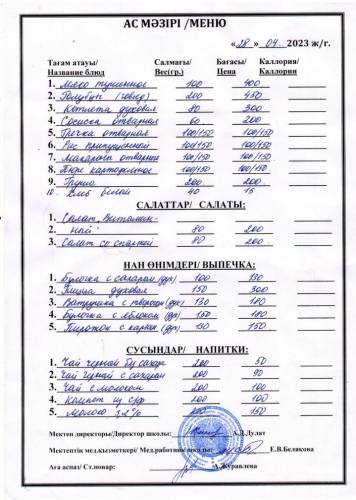 АС МӘЗІРІ /МЕНЮ
«28» 04 2023 ж/г.
Тағам атауы/ Салмағы/ Бағасы/ Каллория/
Название блюд Вес(гр.) Цена Каллории
1. Мясо тушенное 100 400
2. Голубцы (говяд) 200 450
3. Котлета духовая 80 300
4. Сосиски отварная 60 200
5. Гречка отварная 100/150 100/150
6. Рис припущенной 100/150 100/150
7. Макароны отварное 100/150 100/150
8. Пюре картофельное 100/150 100/150
9. 200 200
10. Хлеб белый 40 15
САЛАТТАР/ САЛАТЫ:
1. Салат „Витамин-
2. ный" 80 200
3. Салат со спаржей 80 200
НАН ӨНІМДЕРІ/ ВЫПЕЧКА:
1. Булочка с сахаром (дух) 100 130
2. Пицца духовая 150 300
3. Ватрушка с творогом (дух) 130 180
4. Булочка с яблоком (дух) 150 180
5. Пирожок с картоф (дух) 130 150
СУСЫНДАР/ НАПИТКИ:
1. Чай черный без сахара 200 50
2. Чай черный с сахаром 200 90
3. Чай с молоком 200 100
4. Компот из с/ф 200 100
5. Молоко 3,2% 200 150
Мектеп директоры/Директор школы: Б.Д.Дулат
Мектептік мед.қызметкері/ Мед.работник школы: Е.В.Белякова
Аға аспаз/ Ст.повар: А.Журавлева